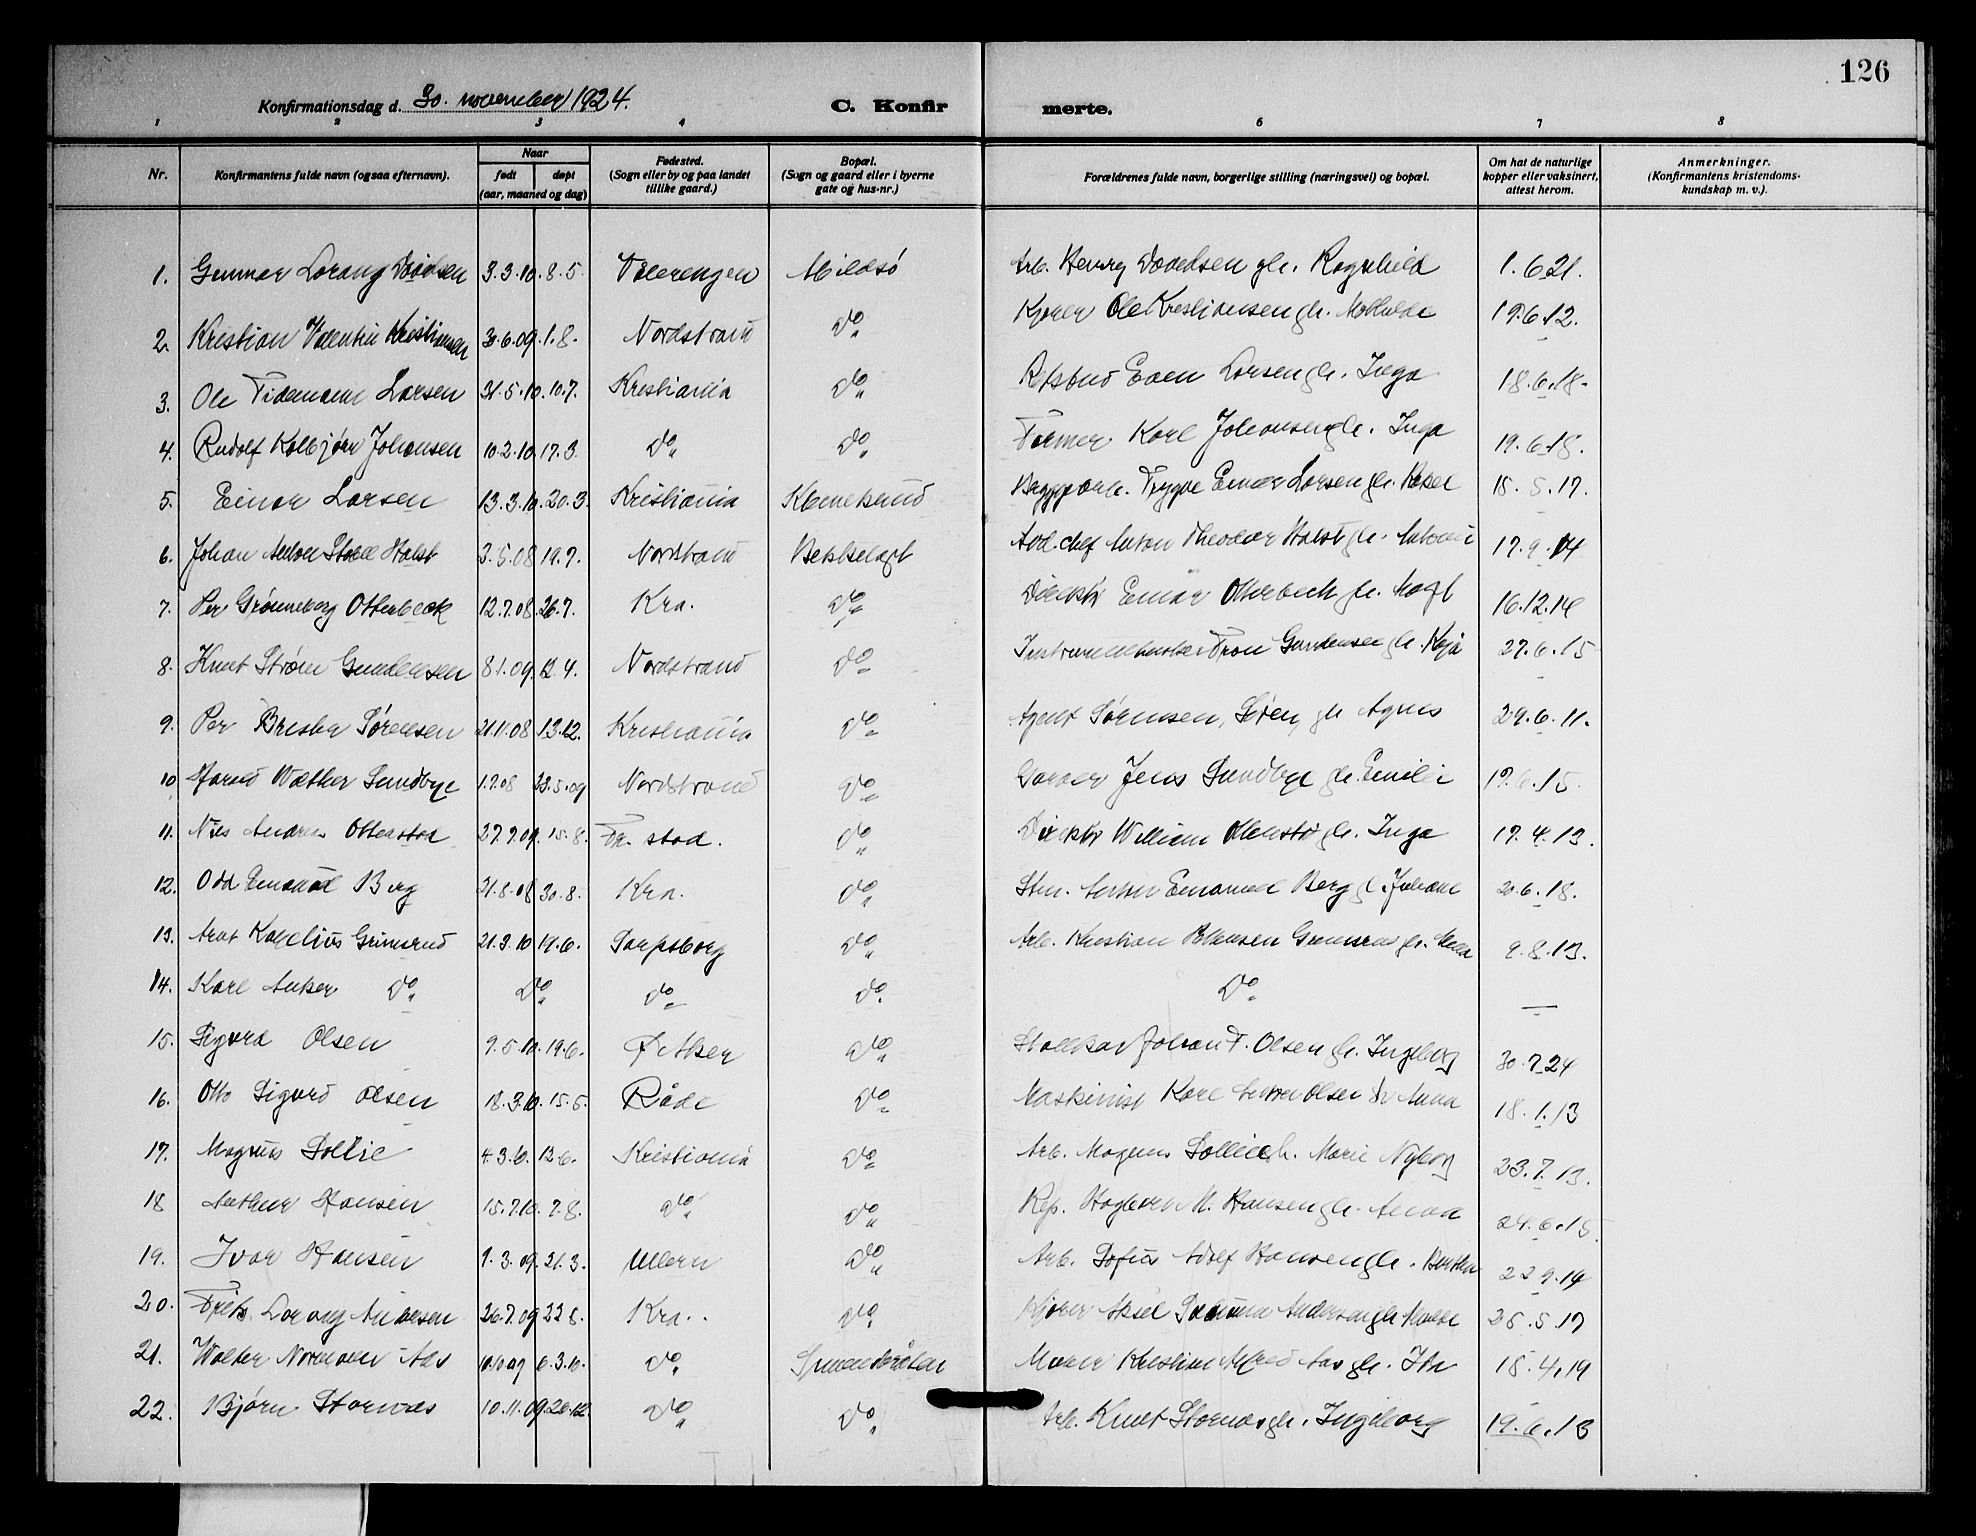 126
Konfirmationsdag d. 30. november 1924. C. Konfirmerte.
1 2 3 4 6 7 8
Nr. Konfirmantens fulde navn (ogsaa efternavn). Naar født døpt (aar, maaned og dag) Fødested. (Sogn eller by og paa landet tillike gaard.) Bopæl. (Sogn og gaard eller i byerne gate og hus-nr.) Forældrenes fulde navn, borgerlige stilling (næringsvei) og bopæl. Om hat de naturlige kopper eller vaksinert, attest herom. Anmerkninger. (Konfirmantens kristendomskundskap m. v.).
1. Gunnar Lorang Davidsen 3.3.10. 8.5. Vaalerengen Arb. Henry Davidsen gh. Ragnhild 1.6.21.
2. Kristian Valentin Kristiansen 30.6.09. 1.8. Nordstrand do Kjører Ole Kristiansen gh. Mathilde 19.6.12.
3. Ole Tidemann Larsen 31.5.10. 10.7. Kristiania do Even Larsen gh. Inga 18.6.18.
4. Rudolf Kolbjørn Johansen 10.2.10. 17.3. do do Former Karl Johansen gh. Inga 19.6.18.
5. Einar Larsen 13.3.10. 20.3. Kristiania Trygve Einar Larsen gh. 15.5.17.
6. Johan Anton Holst 3.5.08 19.7. Nordstrand Bekkelaget Avd.chef Anton Theodor Holst gh. 17.9.14
7. Per Grønneberg Otterbeck 12.7.08. 26.7. Kra. do Direktør Einar Otterbech gh. 16.12.14
8. Knut Strøm Gundersen 8.1.09. 12.4. Nordstrand do Gundersen gh. 27.6.15
9. Per Sørensen 21.11.08 13.12. Kristiania do Agent Sørensen, Søren, gh. Agnes 29.6.11.
10 Harald Walther Sundbye 1.7.08 23.5.09 Nordstrand do Garver Jens Sundbye gh. Emilie 6.15.
11. Nils Andreas Ottenstad 27.7.09. 15.8. Fr. stad. do Direktør William gh. Inga 17.4.13.
12. Odd Emanuel Berg 21.8.08 30.8. Kra. do Emanuel Berg gh. Juliane 20.6.18.
13. Arnt Grimsrud 21.3.10 19.6. Sarpsborg do Arb. Kristian Grimsrud gh. 9.8.13.
14. Karl Anker do do do do do —
15. Sigurd Olsen 9.5.10. 19.6. do Johan F. Olsen gh. Ingeborg 30.7.24
16. Otto Sigurd Olsen 18.3.10. 15.5. Råde do Maskinist Karl Olsen gh. Anna 18.1.13
17. Magnus 4.3.6. 12.6. Kristiania do Arb. Magnus gh. Marie Nyborg 23.7.13.
18 Arthur Hansen 15.7.10. 7.8. do do Rep. M. Hansen gh. Anna 24.6.15.
19. Ivar Hansen 1.3.09. 21.3. Ullern do Arb. Adolf Hansen gh. 22.9.14
20. Lorang Andersen 26.7.09 22.8. Kra. do Kjører Aksel Andersen gh. 25.5.17
21. Walter Normann Aas 10.10.09 6.3.10. do Murer Kristian Alfred Aas gh. 18.4.19
22. Bjørn Stornæs 10.11.09. 26.12. do do Arb. Knut Stornæs gh. Ingeborg 19.6.13